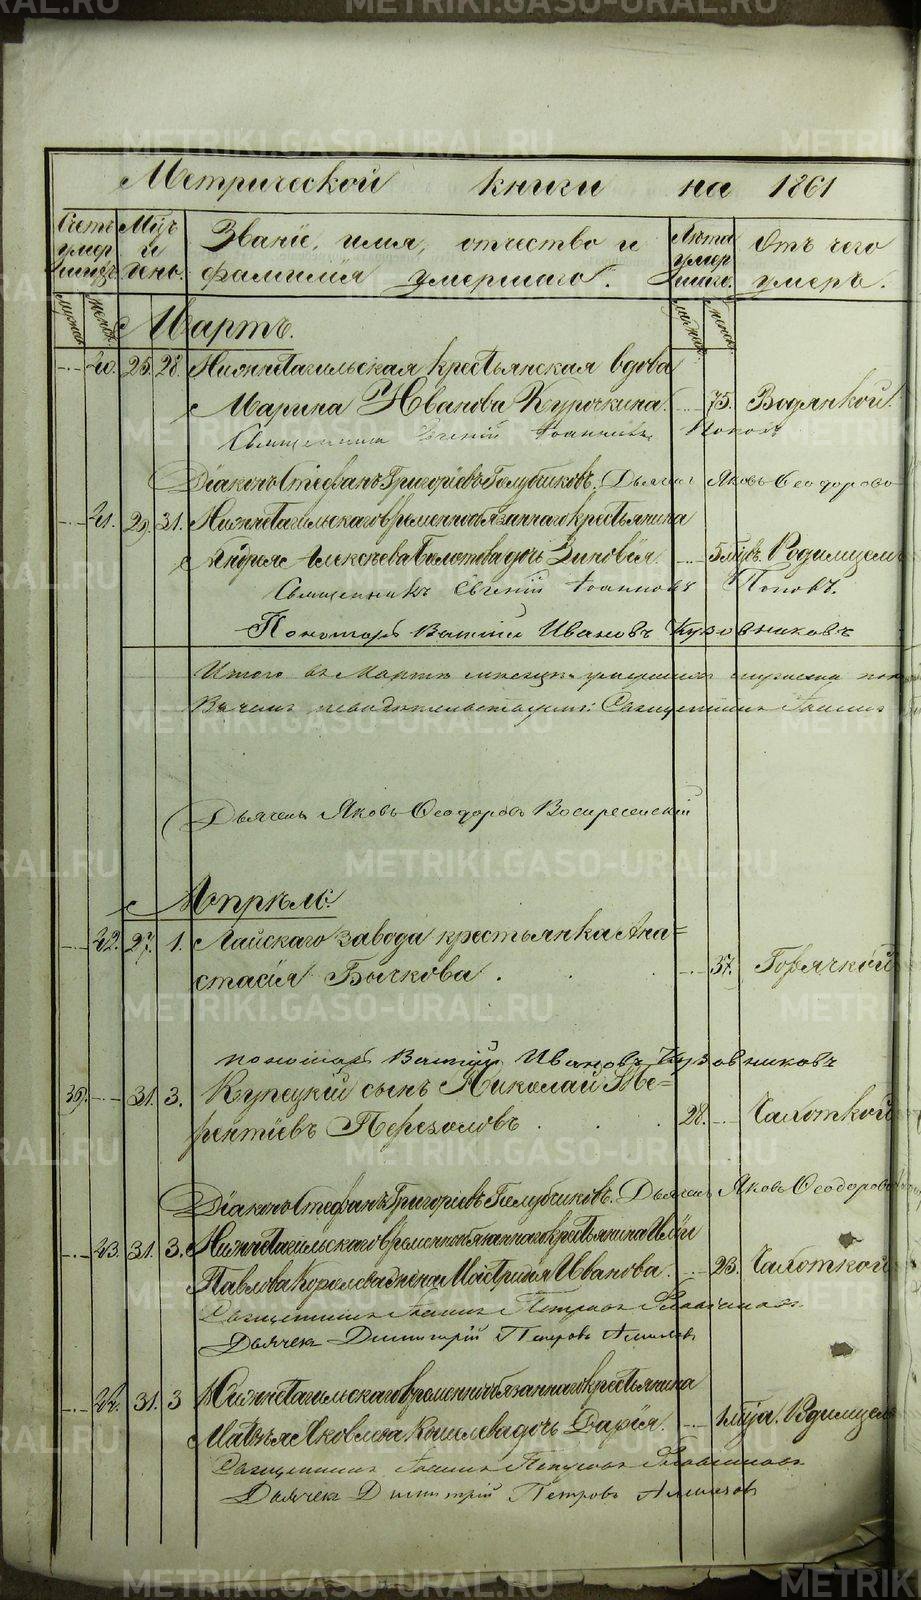 Метрической книги на 1861
Счетъ умершихъ. Мѣц. и день. Званіе, имя, отчество и фамилія умершаго. Лѣта умершаго. Отъ чего умеръ.
Мартъ.
40. 25. 28. Нижнетагильская крестьянская вдова
Марина Иванова Курочкина. 75. Водянкой.
Священникъ Евгеній Іоанновъ Поповъ
Діаконъ Стефанъ Григоріевъ Голубчиковъ. Дьячекъ Яковъ Ѳеодоровъ
41. 29. 31. Нижнетагильскаго временнообязаннаго крестьянина
Андрея Алексѣева дочь Зиновія. 5 мѣц. Родимцемъ
Священникъ Евгеній Іоанновъ Поповъ.
Пономарь Василій Ивановъ Кузовниковъ
Итого въ Мартѣ мѣсяцѣ умершихъ
Въ чемъ и свидѣтельствуемъ: Священникъ Іоаннъ
Дьячекъ Яковъ Ѳеодоровъ Воскресенскій
Апрѣль.
42. 27. 1. Лайскаго завода крестьянка Ана=
стасія Бычкова. 37. Горячкой
пономарь Василій Ивановъ Кузовниковъ
39. 31. 3. Купецкій сынъ Николай Те=
рентіевъ Перезоловъ 28. Чахоткой
Діаконъ Стефанъ Григоріевъ Голубчиковъ. Дьячекъ Яковъ Ѳеодоровъ
43. 31. 3. Нижнетагильскаго временнообязаннаго крестьянина Ильи
Павлова Королева жена Мастридія Иванова. 23. Чахоткой
Священникъ Іоаннъ Петровъ
Дьячекъ Димитрій Петровъ
44. 31. 3 Нижнетагильскаго временнообязаннаго крестьянина
Матвѣя Яковлева Кошелева дочь Дарія. 1 мѣца. Родимцемъ
Священникъ Іоаннъ Петровъ
Дьячекъ Димитрій Петровъ
METRIKI.GASO-URAL.RU